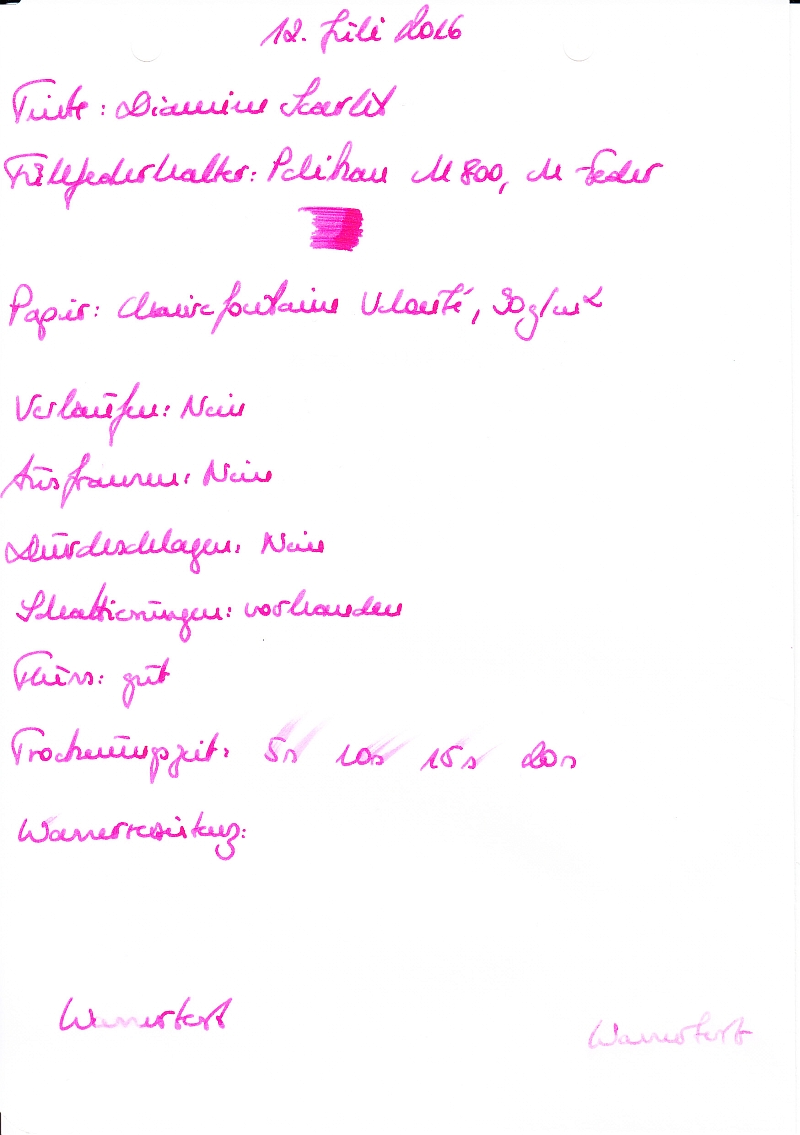 12. Juli 2016
Tinte: Diamine Scarlet
Füllfederhalter: Pelikan M 800, M-Feder
Papier: Clairefontaine Velouté, 90g/m²
Verlaufen: Nein
Ausfransen: Nein
Durchschlagen: Nein
Schattierungen: vorhanden
Fluss: gut
Trocknungszeit: 5s 10s 15s 20s
Wasserresistenz:
Wassertest Wassertest